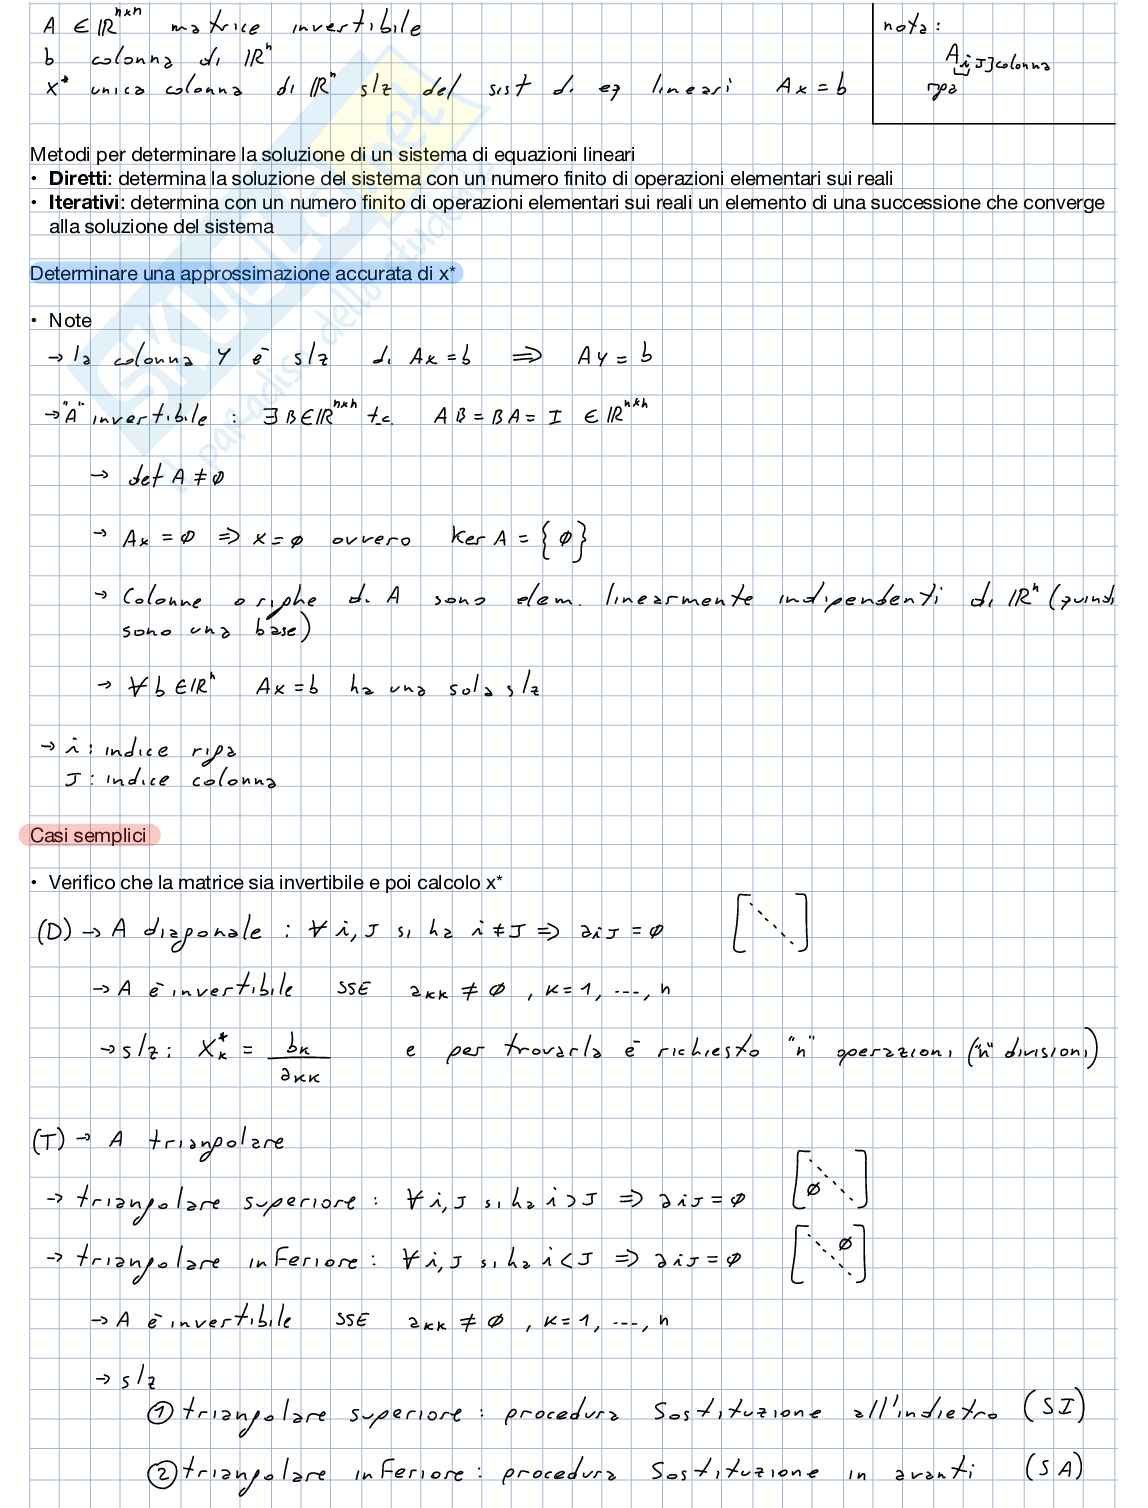 A ∈ ℝⁿˣⁿ matrice invertibile
b colonna di ℝⁿ
x* unica colonna di ℝⁿ slz del sist di eq lineari Ax = b
nota:
A i J] colonna
riga
Metodi per determinare la soluzione di un sistema di equazioni lineari
• Diretti: determina la soluzione del sistema con un numero finito di operazioni elementari sui reali
• Iterativi: determina con un numero finito di operazioni elementari sui reali un elemento di una successione che converge
alla soluzione del sistema
Determinare una approssimazione accurata di x*
• Note
→ la colonna y è slz di Ax = b ⇒ Ay = b
→ "A" invertibile : ∃ B ∈ ℝⁿˣⁿ t.c. AB = BA = I ∈ ℝⁿˣⁿ
→ det A ≠ ∅
→ Ax = ∅ ⇒ x = ∅ ovvero Ker A = {∅}
→ Colonne o righe di A sono elem. linearmente indipendenti di ℝⁿ (quindi
sono una base)
→ ∀ b ∈ ℝⁿ Ax = b ha una sola slz
→ i : indice riga
J : indice colonna
Casi semplici
• Verifico che la matrice sia invertibile e poi calcolo x*
(D) → A diagonale : ∀ i, J si ha i ≠ J ⇒ aiJ = ∅
→ A è invertibile SSE aKK ≠ ∅ , K = 1, ---, n
→ slz : X*K = bK / aKK e per trovarla è richiesto "n" operazioni ("n" divisioni)
(T) → A triangolare
→ triangolare superiore : ∀ i, J si ha i > J ⇒ aiJ = ∅ [∅]
→ triangolare inferiore : ∀ i, J si ha i < J ⇒ aiJ = ∅ [∅]
→ A è invertibile SSE aKK ≠ ∅ , K = 1, ---, n
→ slz
① triangolare superiore : procedura Sostituzione all'indietro (SI)
② triangolare inferiore : procedura Sostituzione in avanti (SA)